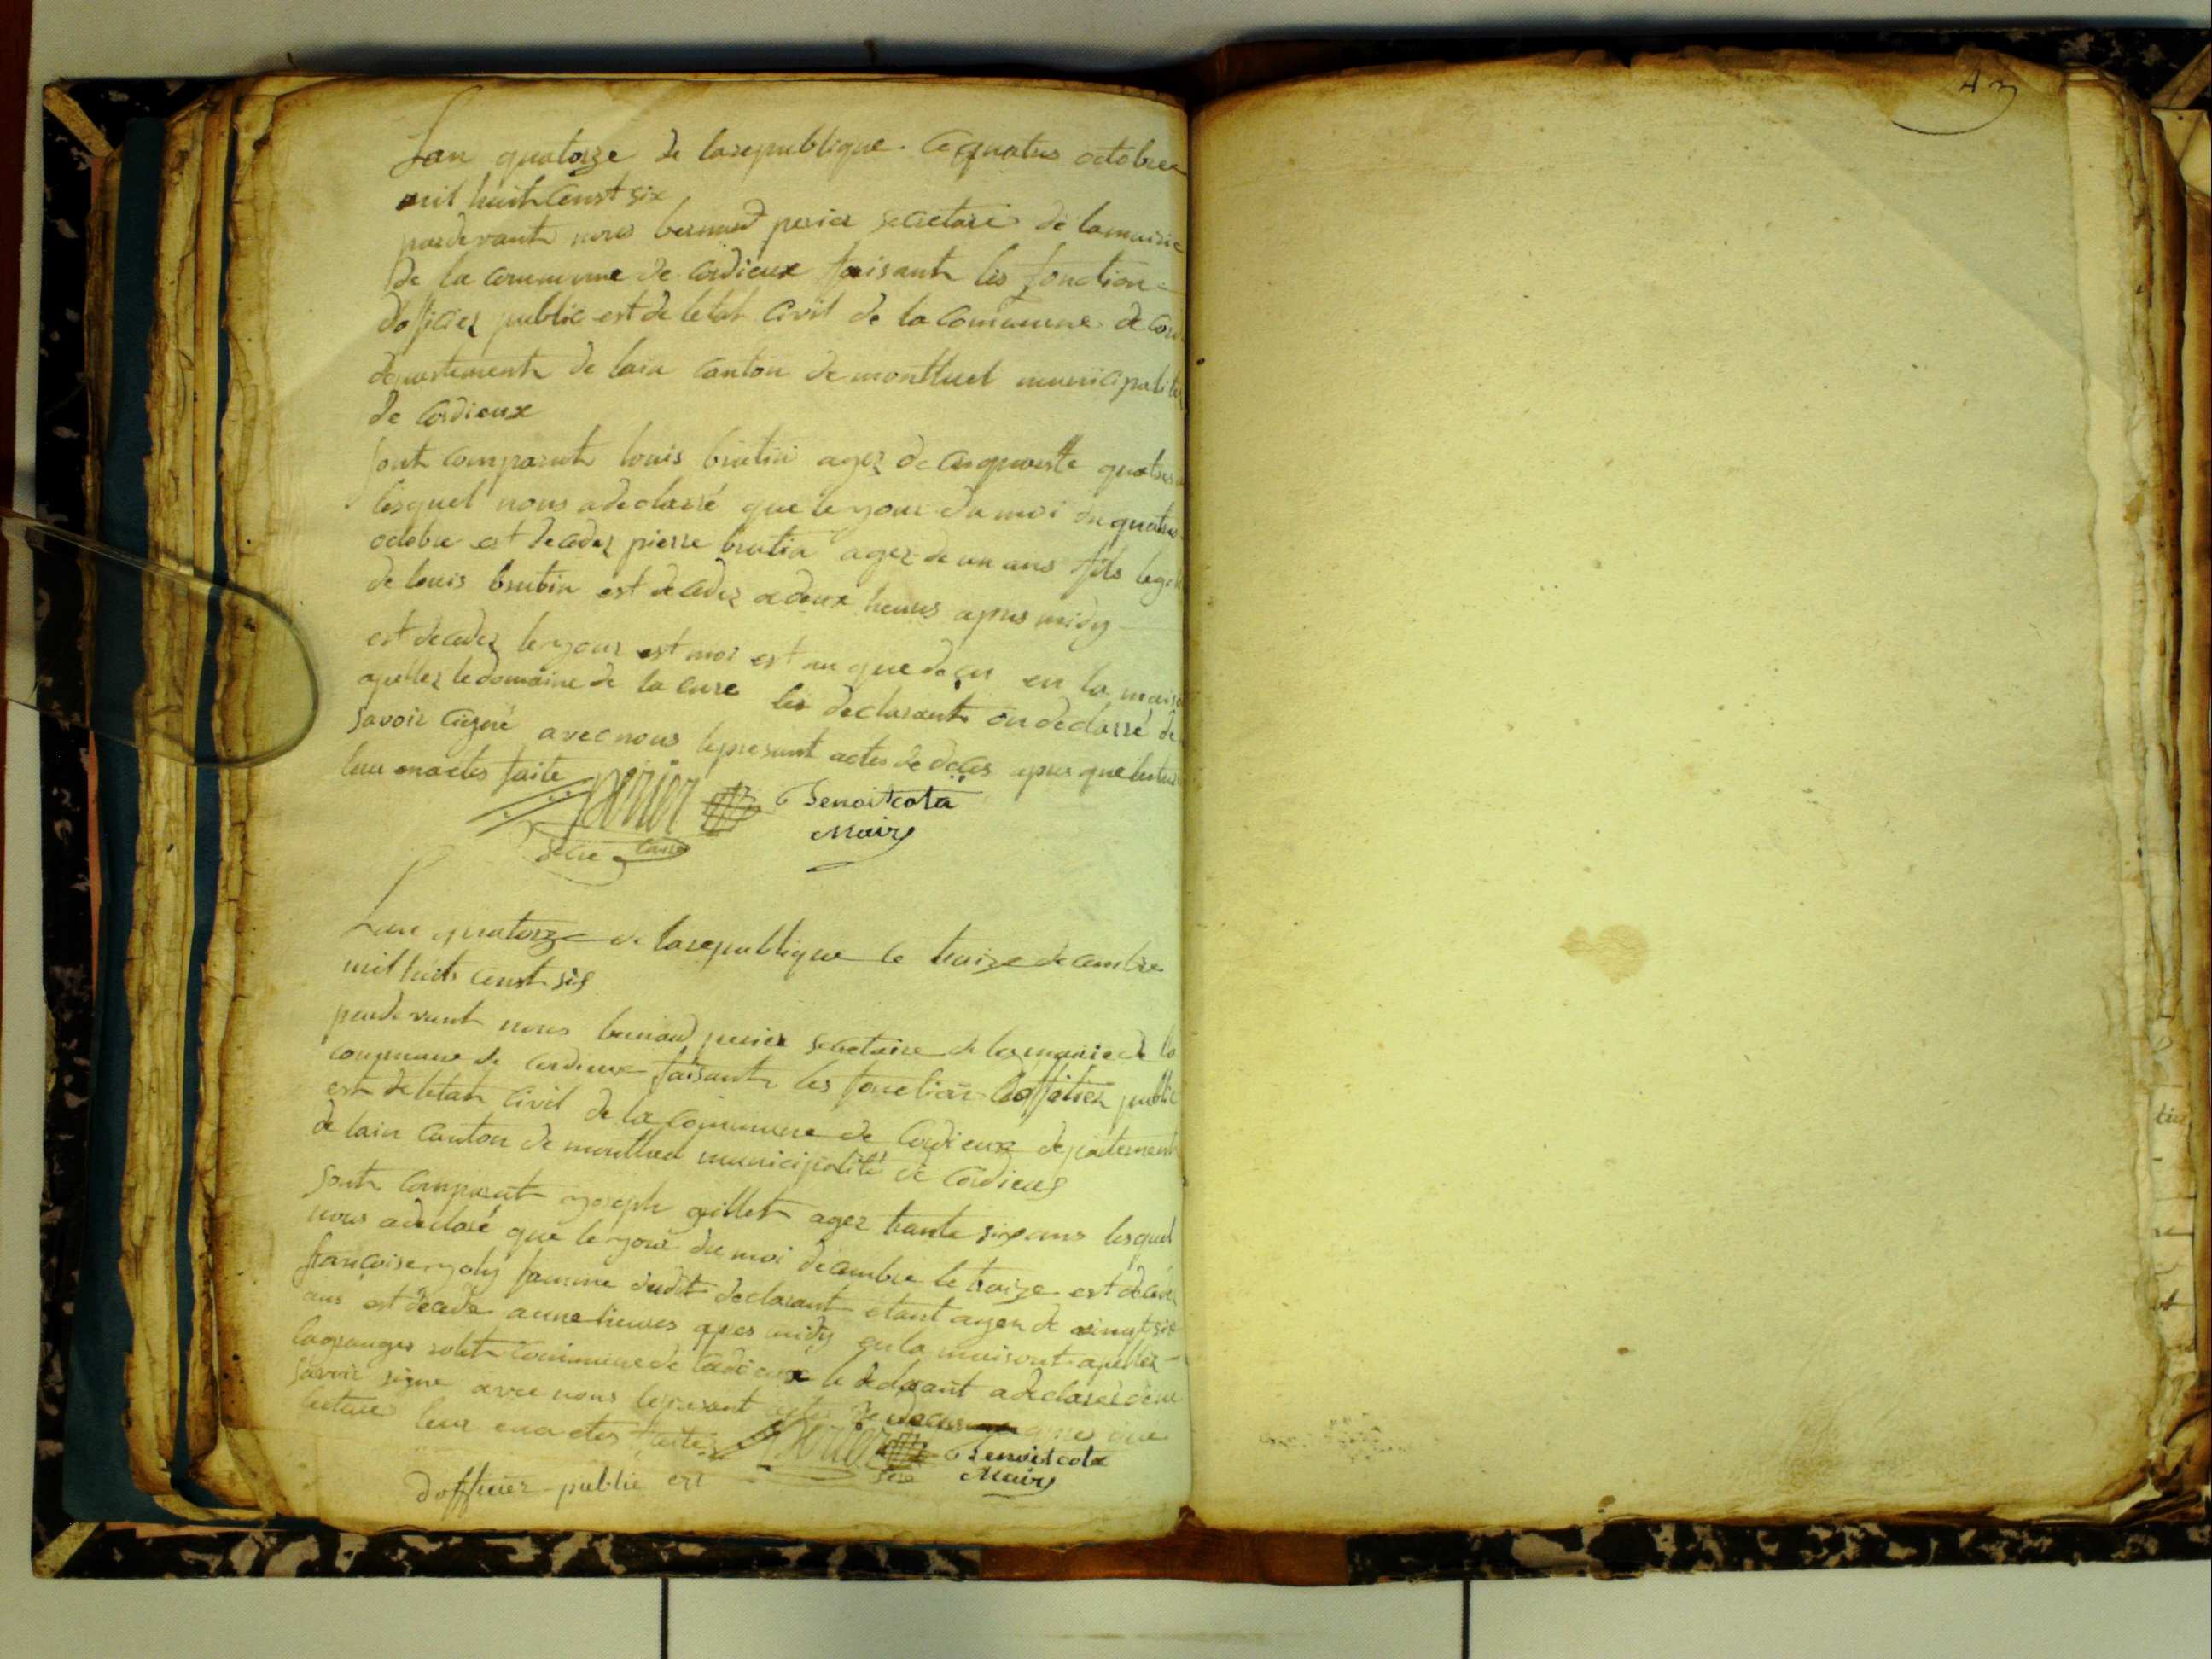 43
Lan quatorze de larepublique. Ce quatres octobres
mil huit Censt six
pardevant nous bernard perier secretaire de lamairie
de la commune de cordieux faisant les fonction
dofficier public est de letat Civil de la Commune de cor
departement de lain canton de montluel municipalite
de Cordieux
sont comparut louis brutin agez de cinquante quatres
lesquel nous adeclarré que le your du moi du quatres
octobre est decedez pierre brutin agez de un ans fils leg
de louis brutin est decedez a deux heures apres midy
est decedez le your est moi est an que de su en la maiso
apellez le domaine de la cure les declarant on declarré de
savoir cigné avec nous lepresant actes de deces apres que lectur
leur enactes faite
perier
Benoit cota
Maire
secre taire
Lan quatorze de larepublique le traize decembre
mil huits censt six
pardevant nous bernard perier secretaire de lamairie de la
commune de cordieux faisant les fonction dofficier public
est de letat civil de la commune de Cordieux departement
de lain Canton de montluel municipalité de Cordieux
sont Comparut yoseph gillet agez trante six ans lesquel
nous adeclaré que le your du moi decembre le traize est deced
francoise yoly famme dudit declarant etant agez de vingt six
ans est decede aune heures apres midy en la maisont apellez
lagranges solet commune de Cordieux le declarant a declarer de ne
savoir signe avec nous lepresant actes de deces apres que
lecture leur enactes faite
perier
Benoit cota
secre
Maire
dofficier public est